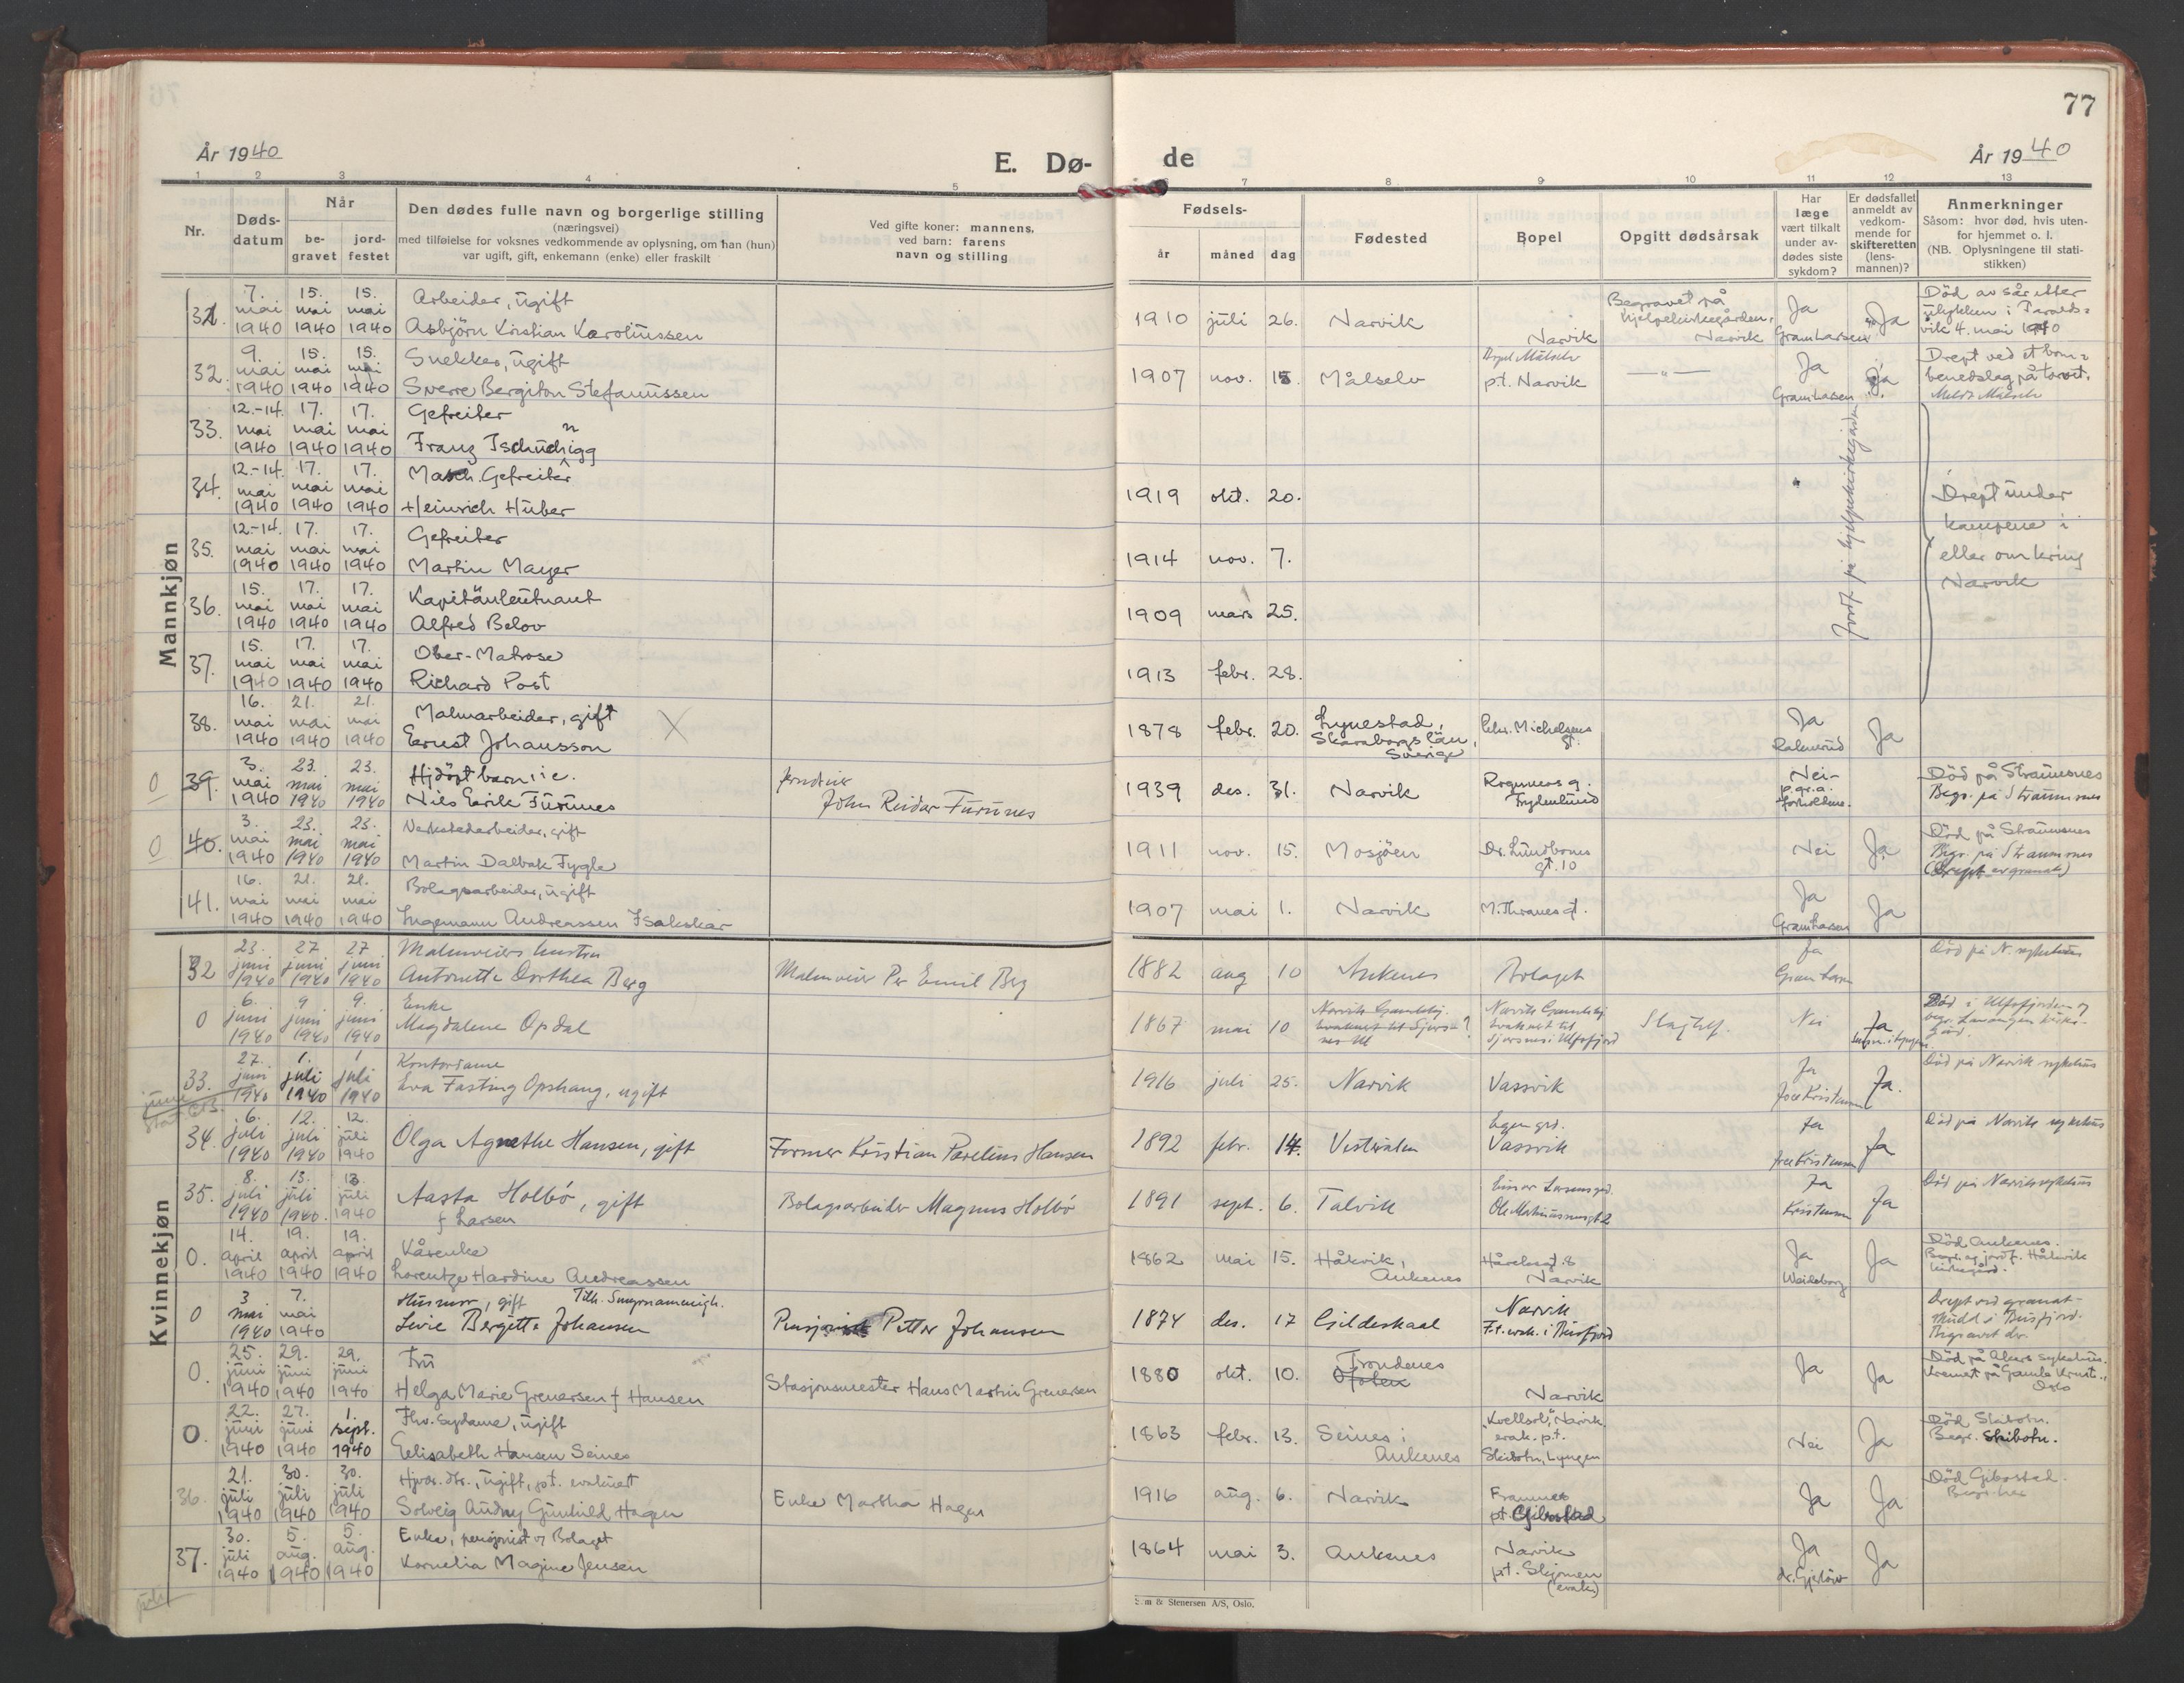 77
År 1940
E. Dø-
de
År 1940
1 2 3 4 5 6 7 8 9 10 11 12 13
Nr.
Døds-
datum
Når
be-
gravet
jord-
festet
Den dødes fulle navn og borgerlige stilling
(næringsvei)
med tilføielse for voksnes vedkommende av oplysning, om han (hun)
var ugift, gift, enkemann (enke) eller fraskilt
Ved gifte koner: mannens,
ved barn: farens
navn og stilling
Fødsels-
år måned dag
Fødested
Bopel
Opgitt dødsårsak
Har
læge
vært tilkalt
under av-
dødes siste
sykdom?
Er dødsfallet
anmeldt av
vedkom-
mende for
skifteretten
(lens-
mannen)?
Anmerkninger
Såsom: hvor død, hvis uten-
for hjemmet o. l.
(NB. Oplysningene til stati-
stikken)
Mannkjøn
31. 7. mai 1940 15. mai 1940 15. mai 1940
Arbeider, ugift
Asbjörn Kristian Karolüssen
1910 juli 26. Narvik Narvik
Begravet på
hjelpekirkegården,
Narvik
Ja
Gram Larsen
Ja
Død av sår etter
ulykken i
vik 4. mai 1940
32. 9. mai 1940 15. mai 1940 15. mai 1940
Snekker, ugift
Sverre Bergiton Stefanussen
1907 nov. 15. Målselv
Målselv
p.t. Narvik
—„—
Ja
Gram Larsen
Ja
Drept ved et bom=
benedslag på torvet.
Målselv
33. 12.-14. mai 1940 17. mai 1940 17. mai 1940
Gefreiter
Franz
34. 12.-14. mai 1940 17. mai 1940 17. mai 1940
Masch. Gefreiter
Heinrich Huber
1919 okt. 20.
Jordf. på hjelpekirkegården
Drept under
kampene i
eller omkring
Narvik
35. 12.-14. mai 1940 17. mai 1940 17. mai 1940
Gefreiter
Martin Mayer
1914 nov. 7.
36. 15. mai 1940 17. mai 1940 17. mai 1940
Kapitänleutnant
Alfred Belov
1909 mars 25.
37. 15. mai 1940 17. mai 1940 17. mai 1940
Ober-Matrose
Richard Post
1913 febr. 28.
38. 16. mai 1940 21. mai 1940 21. mai 1940
Malmarbeider, gift
Ernest Johansson
X
1878 febr. 20.
Skaraborgs län,
Sverige
Chr. Michelsens
gt.
Ja
Ja
0 39. 3. mai 1940 23. mai 1940 23. mai 1940
Hjdöpt barn
Nils Eirik Furunes
John Reidar Furunes
1939 des. 31. Narvik
Nei-
p.gr.a.
forholdene.
Död på Straumsnes
Begr. på Straumsnes
0 40. 3. mai 1940 23. mai 1940 23. mai 1940
Verkstedarbeider, gift
Martin Dalbak Fygle
1911 nov. 15. Mosjöen
gt. 10
Nei
Ja
Död på Straumsnes
Begr. på Straumsnes
(Drept av granat)
41. 16. mai 1940 21. mai 1940 21. mai 1940
Bolagsarbeider, ugift
Ingemann Andreassen Isakskar
1907 mai 1. Narvik M. Thranes gt.
Ja
Gram Larsen
Ja
Kvinnekjøn
32 23. juni 1940 27 juni 1940 27 juni 1940
Malmveiers hustru
Antonette Dorthea Berg
Malmveier Per Emil Berg
1882 aug 10 Ankenes Bolaget
Ja
Gram Larsen
Död på N. sykehus
0 6. juni 1940 9 juni 1940 9. juni 1940
Enke
Magdalene Opdal
1867 mai 10
Narvik
Evakuert til
Narvik
Evakuert til
Sjursnes i Ulfsfjord
Slagtilf.
Nei
Ja
Död i Ulfsfjorden og
33. 27. juni 1940 1. juli 1940 1 juli 1940
Kontordame
Eva Fasting Opshaug, ugift
1916 juli 25. Narvik Vassvik
Ja
Kristensen
Ja.
Död på Narvik sykehus
34. 6. juli 1940 12. juli 1940 12. juli 1940
Olga Agnethe Hansen, gift
Former Kristian Parelius Hansen
1892 febr. 14. Vesterålen
Egen grd.
Vassvik
Ja
Kristensen
Ja
Död på Narvik sykehus
35. 8. juli 1940 13. juli 1940. 13. juli 1940
Aasta Holbö, gift
f Larsen
Bolagsarbeider Magnus Holbö
1891 sept. 6. Talvik
Einar Larsens grd.
Ja
Kristensen
Ja
Död på Narvik sykehus
0. 14. april 1940 19. april 1940 19. april 1940
Kårenke
Lorentze Hardine Andreassen
1862 mai 15. Håkvik,
Ankenes
Narvik
Ja
Ja
Död Ankenes.
Begr. og jordf. Håkvik
kirkegård.
0 3 mai 1940 7. mai 1940
Husmor, gift
Livie Bergitte Johansen
Petter Johansen
1874 des. 17 Gildeskaal
Narvik
Drept ved granat-
Begravet der.
0. 25. juni 1940 29. juni 1940 29. juni 1940
Fru
Helga Marie Grenersen f Hansen
Stasjonsmester Hans Martin Grenersen
1880 okt. 10.
Trondenes
Ofoten
Narvik
Ja
Ja
Död på Akers sykehus.
Oslo
0. 22. juni 1940 27. juni 1940 1. sept. 1940
Fhv. sydame, ugift
Elisabeth Hansen Seines
1863 febr. 13. Seines i
Ankenes
"Kvellsol", Narvik
evak. p.t.
Skibotn, Lyngen
Nei
Ja
Död Skibotn.
Begr. Skibotn.
36. 21. juli 1940 30. juli 1940 30. juli 1940
ugift, pt. evakuert
Solveig Audny Gunhild Hagen
Enke Martha Hagen
1916 aug. 6. Narvik
Framnes
pt. Gibostad
Ja
Ja
Död Gibostad.
Begr. her
37. 30. juli 1940 5. aug. 1940 5. aug. 1940
Enke, pensjonist v/ Bolaget
Kornelia Magine Jensen
1864 mai 3. Ankenes
Narvik
pt. Skjomen
(evak.)
Ja
dr. Gjerløw
Ja
& Stenersen A/S, Oslo.